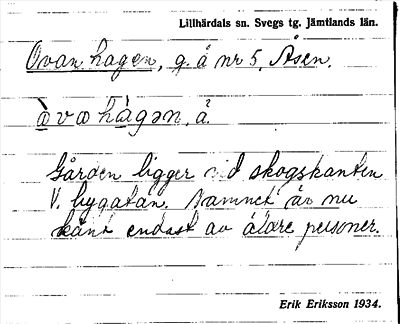 Lillhärdals sn. Svegs tg. Jämtlands län.
Ovan hagen, g. å nr 5, Åsen.
å̀ v a h à g ə n, å
Gården ligger vid skogskanten
V. bygatan. Namnet är nu
känt endast av äldre personer.
Erik Eriksson 1934.